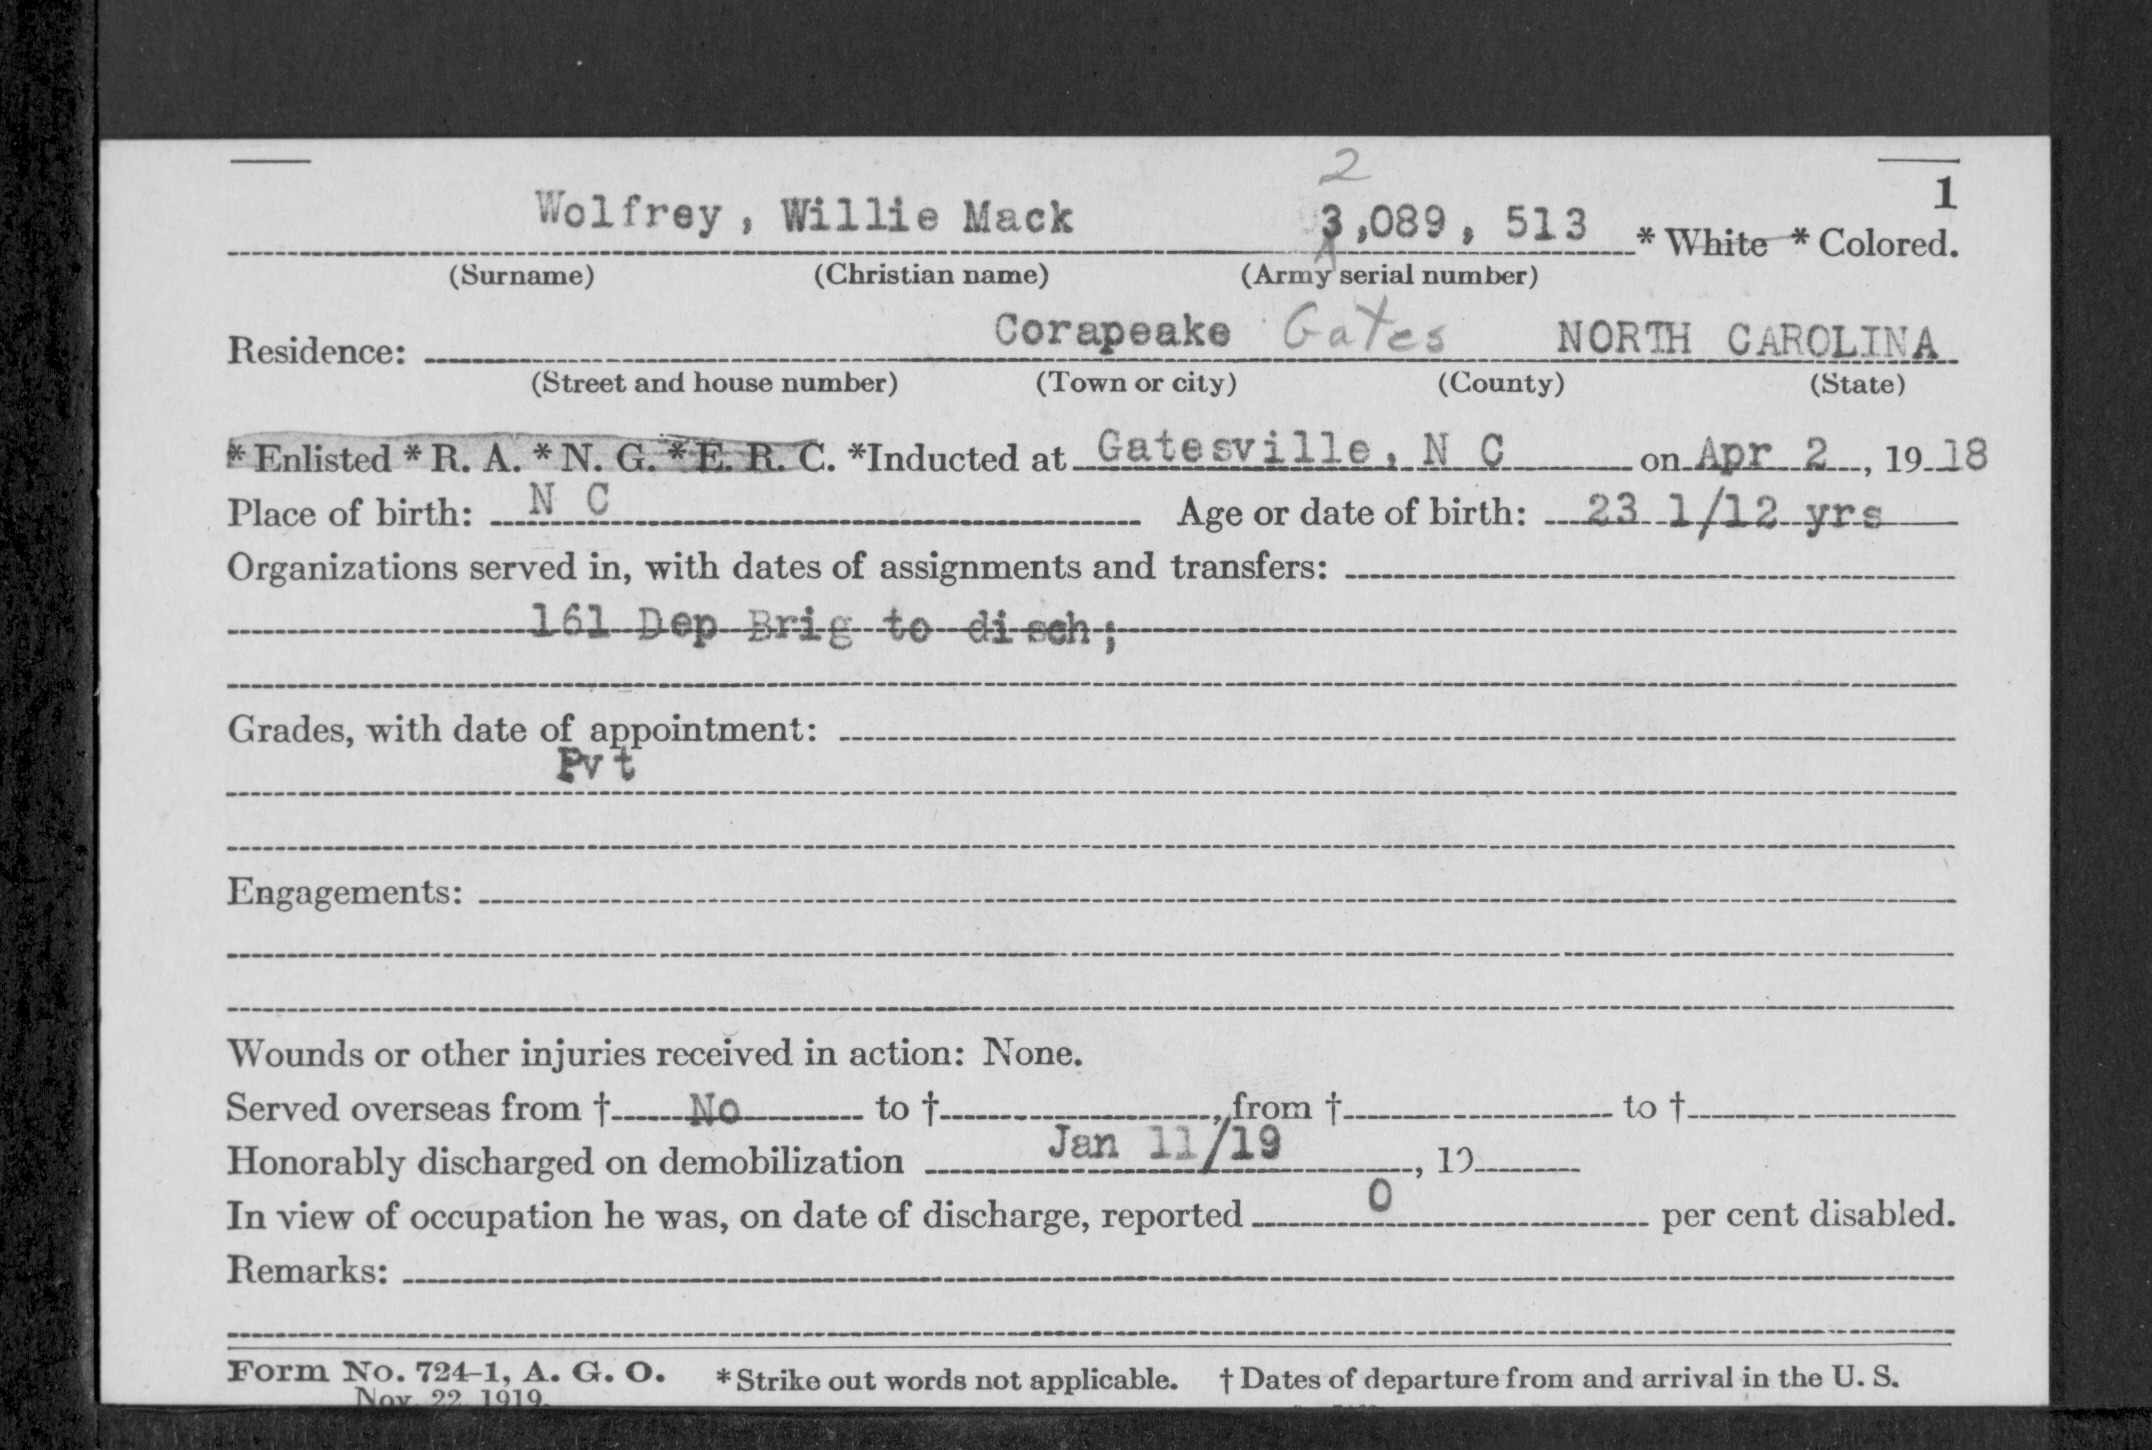 2
1
Wolfrey, Willie Mack 3,089, 513 * White * Colored.
(Surname) (Christian name) (Army serial number)
Residence: Corapeake Gates NORTH CAROLINA
(Street and house number) (Town or city) (County) (State)
* Enlisted * R. A. * N. G. * E. R. C. *Inducted at Gatesville, N C on Apr 2, 19 18
Place of birth: N C Age or date of birth: 23 1/12 yrs
Organizations served in, with dates of assignments and transfers:
161 Dep Brig to disch;
Grades, with date of appointment:
Pvt
Engagements:
Wounds or other injuries received in action: None.
Served overseas from † No to †, from † to †
Honorably discharged on demobilization Jan 11/19, 19
In view of occupation he was, on date of discharge, reported 0 per cent disabled.
Remarks:
Form No. 724-1, A. G. O. * Strike out words not applicable. † Dates of departure from and arrival in the U. S.
Nov. 22, 1919.